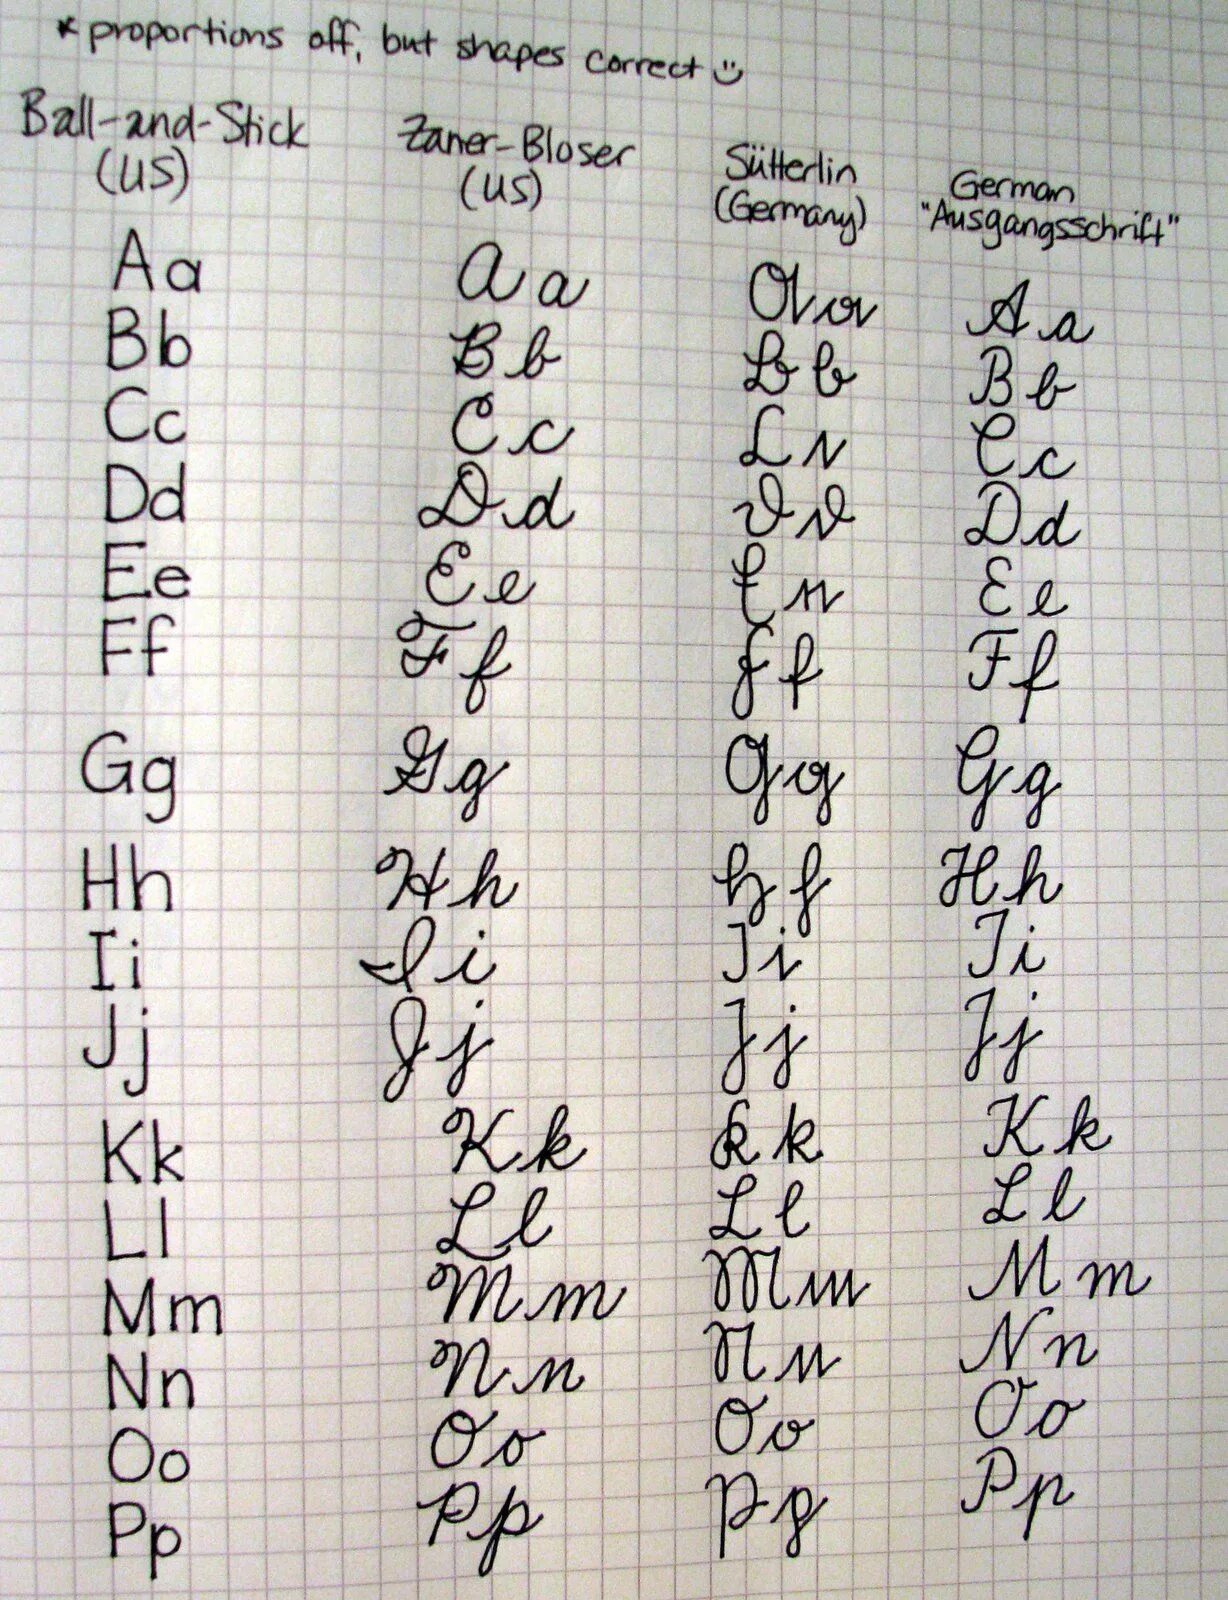 *proportions off, but shapes correct
Ball-and-Stick (US) Zaner-Bloser (US) Sütterlin (Germany) German "Ausgangsschrift"
Aa Aa Aa Aa
Bb Bb Bb Bb
Cc Cc Cc Cc
Dd Dd Dd Dd
Ee Ee Ee Ee
Ff Ff Ff Ff
Gg Gg Gg Gg
Hh Hh Hh Hh
Ii Ii Ii Ii
Jj Jj Jj Jj
Kk Kk Kk Kk
Ll Ll Ll Ll
Mm Mm Mm Mm
Nn Nn Nn Nn
Oo Oo Oo Oo
Pp Pp Pp Pp